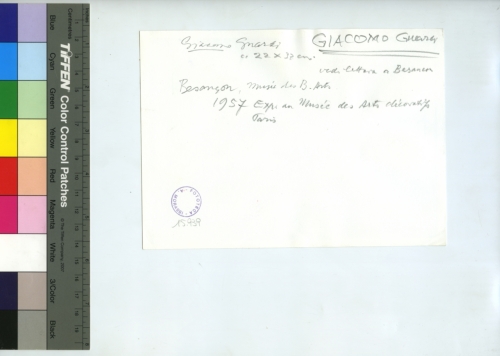 Giacomo Guardi
GIACOMO Guardi
c. 22 x 37 cm.
vedi lettera a Besançon
Besançon, Musée des B. Arts
1957 Exp. au Musée des Arts décoratifs
Paris
FOTOTECA
15759
Blue
Cyan
Green
Yellow
Red
Magenta
White
3/Color
Black
TIFFEN Color Control Patches
Centimetres